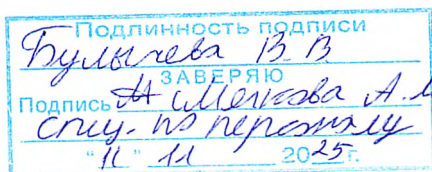 Подлинность подписи
Булычева В. В.
ЗАВЕРЯЮ
Подпись А. М
спец. по персоналу
"11" 11 2025 г.